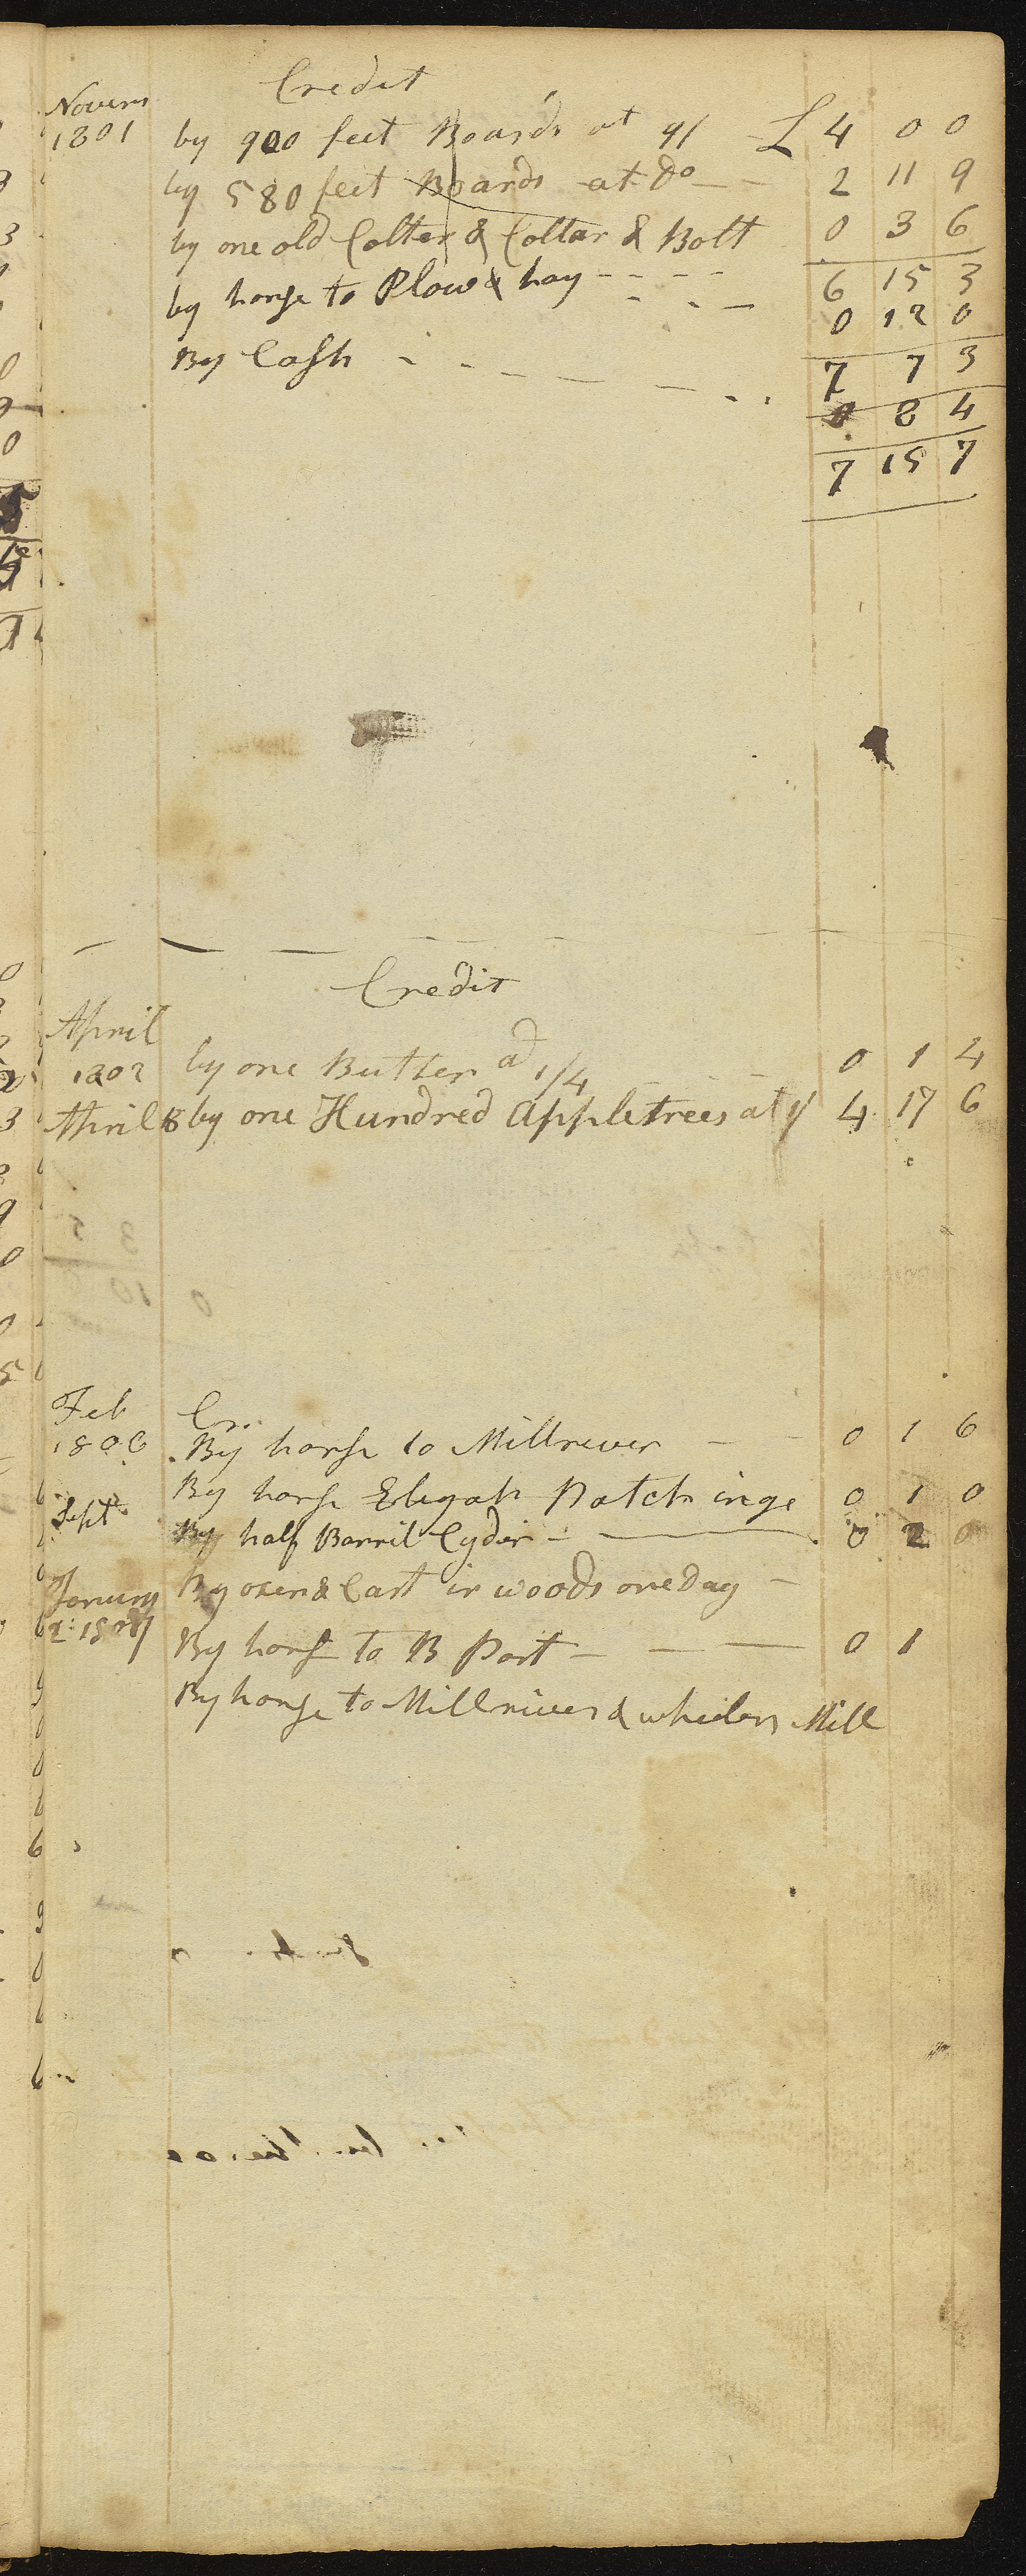 Credit
Novem
1801 by 900 feet Boards at 9/ £ 4 0 0
by 580 feet Boards at Do 2 11 9
by one old Colter & Collar & Bolt 0 3 6
6 15 3
by horse to Plow & hay 0 12 0
7 7 3
By Cash 0 8 4
7 15 7
Credit
April
1802 by one Butter at 1/4 0 1 4
April 8 by one Hundred appletrees at 4 17 6
Feb Cr.
1806 By horse to Millrever 0 1 6
By horse Elegah Patchinge 0 1 0
Sept By half Barril Cyder 0 2 0
Jenuery By oxen & Cart in woods one Day
2 1807
By horse to B Port 0 1
By horse to Millriver & wheelers Mill